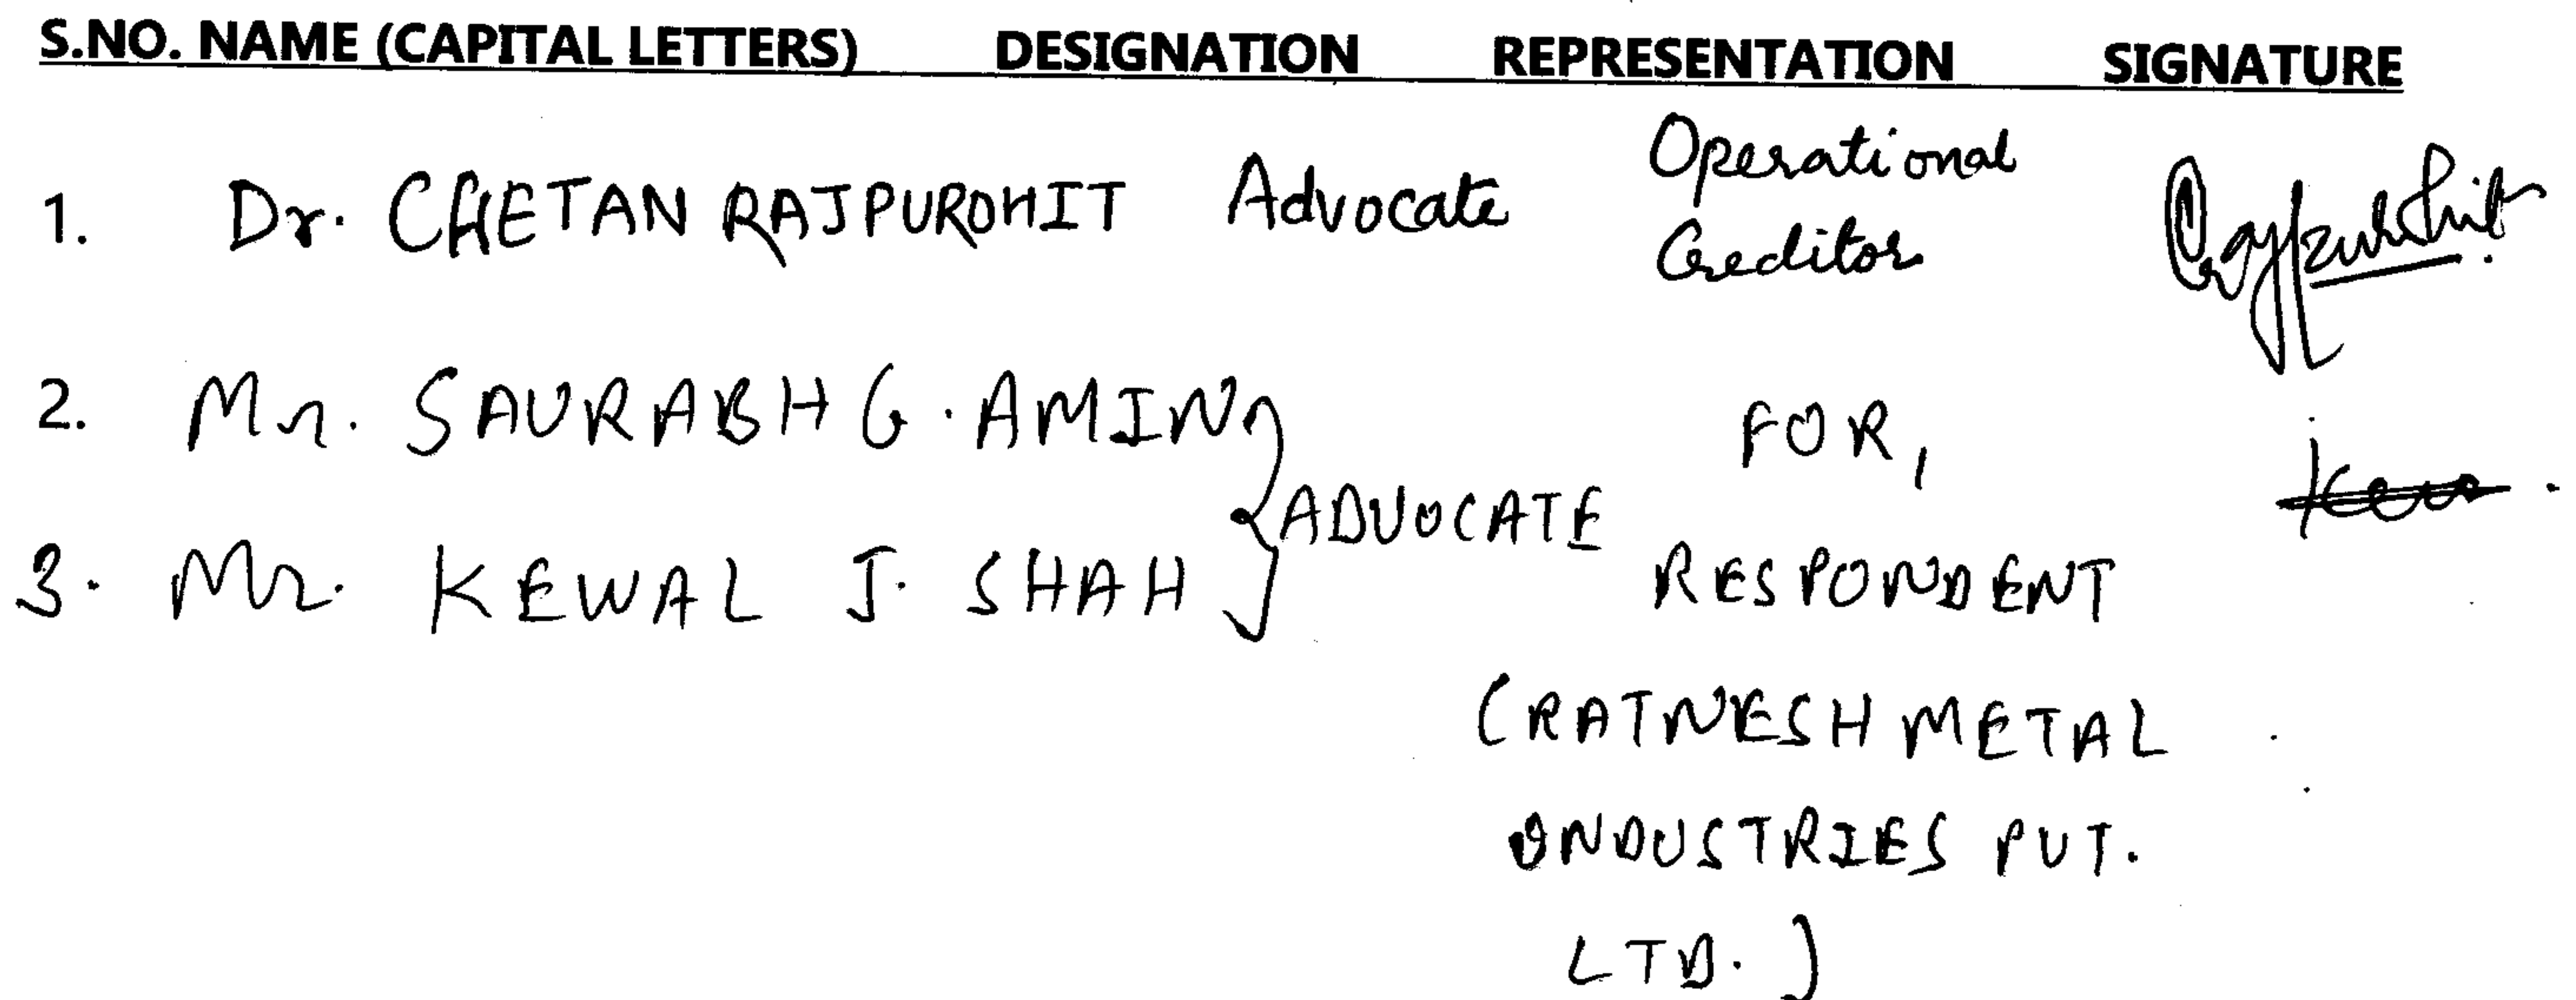 S.NO. NAME (CAPITAL LETTERS) DESIGNATION REPRESENTATION SIGNATURE
1. Dr. CHETAN RAJPUROHIT Advocate Operational Creditor
2. Mr. SAURABH G. AMIN
FOR,
ADVOCATE
3. Mr. KEWAL J. SHAH
RESPONDENT
(RATNESH METAL
INDUSTRIES PVT.
LTD.)